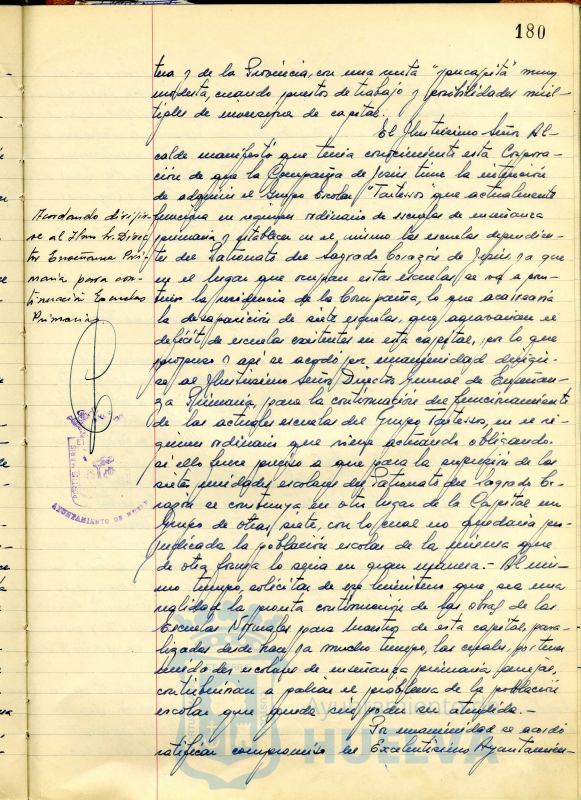 180
tra y de la Provincia, con una renta "per capita" muy
modesta, cuando puestos de trabajo y posibilidades múl-
tiples de inversion de capital.
El Ilustrisimo Señor Al-
calde manifestó que tenia conocimiento esta Corpora-
ción de que la Compañia de Jesús tiene la intención
de adquirir el Grupo Escolar "Tartessos" que actualmente
funciona en regimen ordinario de escuelas de enseñanza
primaria y establecer en el mismo las escuelas dependien-
tes del Patronato del Sagrado Corazón de Jesús, ya que
en el lugar que ocupan estas escuelas se va a cons-
truir la residencia de la Compañia, lo que acarrearia
la desaparición de siete escuelas, que agravarian el
deficit de escuelas existentes en esta capital, por lo que
propuso y asi se acordó por unanimidad dirigir-
se al Ilustrisimo Señor Director General de Enseñan-
za Primaria, para la continuación del funcionamiento
de las actuales escuelas del Grupo Tartessos, en el ré-
gimen ordinario que viene actuando obligando
si ello fuere preciso a que para la supresión de las
siete unidades escolares del Patronato del Sagrado Co-
razón se construya en otro lugar de la Capital un
Grupo de otras siete, con lo cual no quedaria per-
judicada la población escolar de la misma que
de otra forma lo seria en gran manera.- Al mis-
mo tiempo, solicitar de ese Ministerio que sea una
realidad la pronta continuación de las obras de las
Escuelas Normales para Maestros de esta capital, para-
lizadas desde hace ya mucho tiempo, las cuales, por tener
unidades escolares de enseñanza primaria anejas,
contribuirian a paliar el problema de la población
escolar que queda sin poder ser atendida.-
Por unanimidad se acordó
ratificar compromiso del Excelentisimo Ayuntamien-
Acordando dirigir-
se al Ilmo Sr. Direc-
tor Enseñanza Pri-
maria para con-
tinuación Escuelas
Primaria
AYUNTAMIENTO DE HUELVA
Ayuntamiento
HUELVA